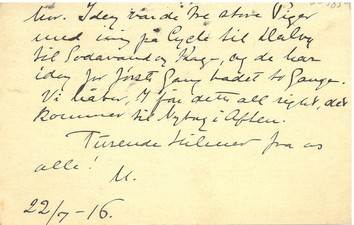 hr. I dag var de tre store Piger
med mig på Cycle til Dalby
til Sodavand og Kage, og de har
idag for første Gang badet to Gange.
Vi håber, I får dette all right, det
kommer til Nybog i Aften.
Tusende Hilsner fra os
alle!
M.
22/7-16.